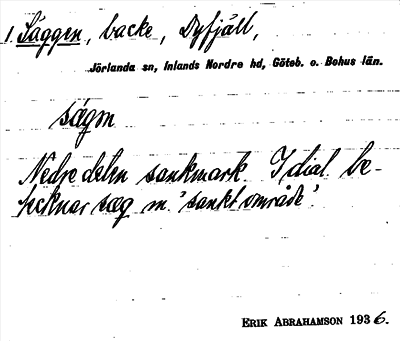 1. Säggen, backe, Dyfjäll,
Jörlanda sn, Inlands Nordre hd, Göteb. o. Bohus län.
sägm
Nedre delen sankmark. I dial. be-
tecknar sæg m. 'sankt område'.
ERIK ABRAHAMSON 1936.